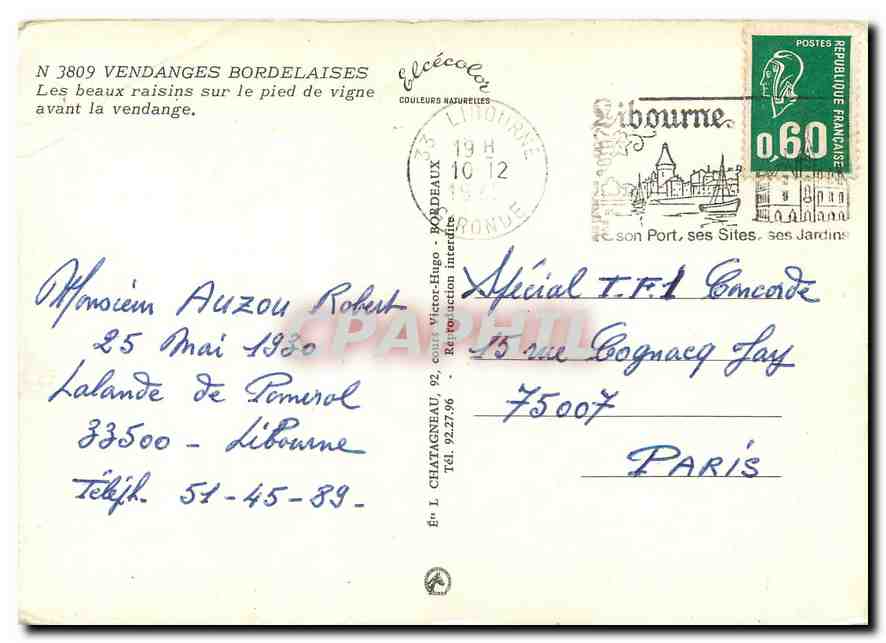 N 3809 VENDANGES BORDELAISES
Les beaux raisins sur le pied de vigne
avant la vendange.
Elcécolor
COULEURS NATURELLES
33 LIBOURNE
19 H
10-12
GIRONDE
Libourne
son Port, ses Sites, ses Jardins
POSTES
REPUBLIQUE FRANÇAISE
0,60
Monsieur AUZOU Robert
25 Mai 1930
Lalande de Pomerol
33500 - LiBourne
Téléph. 51-45-89-
Éts L CHATAGNEAU, 92, cours Victor-Hugo - BORDEAUX
Tél. 92.27.96 - Reproduction interdite
Spécial T.F.1 Concorde
15 rue Cognacq Jay
75007
PARiS
CPAPHIL